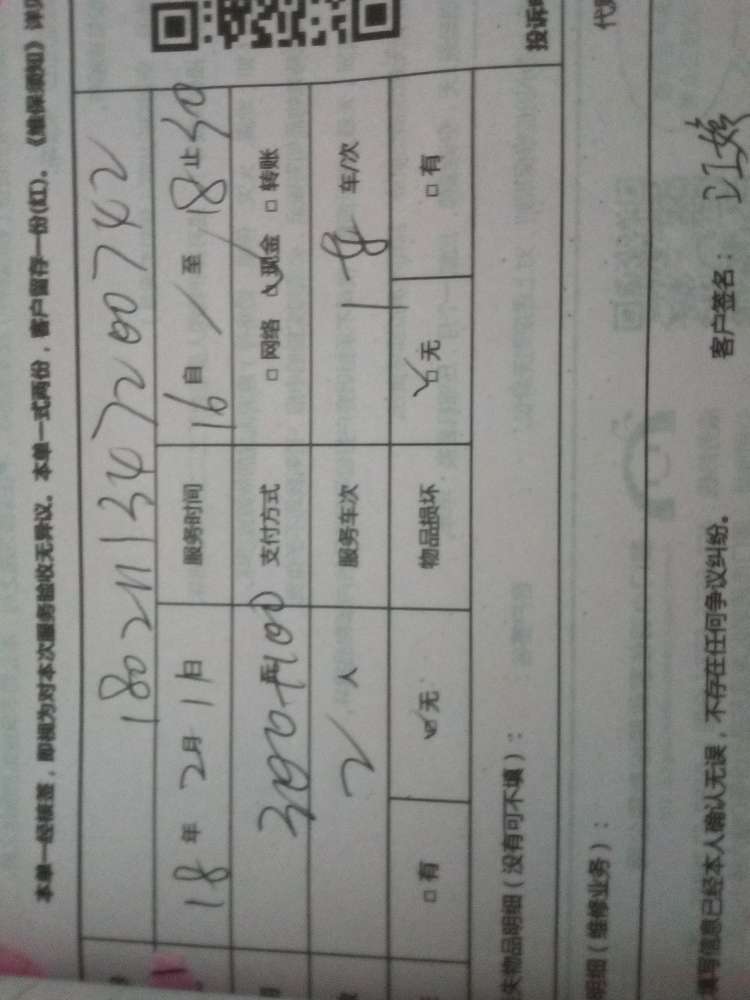 本单一经核签，即视为对本次服务验收无异议。本单一式两份，客户留存一份(红)。《维保须知》详见
1802111347200742
18年 2月 11日 服务时间 16自 / 至 18止30
300+100 元 支付方式 □网络 ☑现金 □转账
2 人 服务车次 1 车/次
□有 ☑无 物品损坏 ☑无 □有
失物品明细（没有可不填）：
投诉
明细（维修业务）：
填写信息已经本人确认无误，不存在任何争议纠纷。 客户签名：